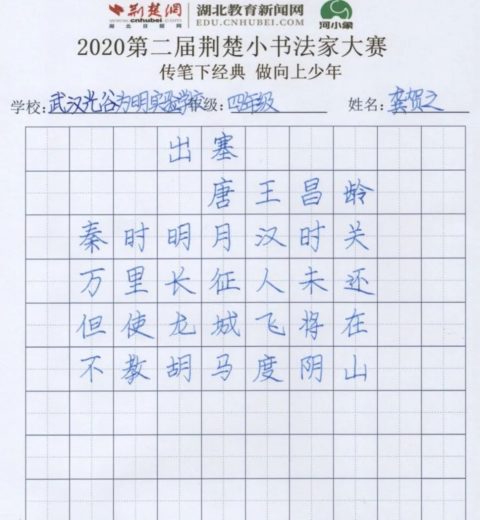 荆楚网 湖北教育新闻网
www.cnhubei.com EDU.CNHUBEI.COM 河小象
湖北日报网
2020第二届荆楚小书法家大赛
传笔下经典 做向上少年
学校:武汉光谷为明实验学校 班级:四年级 姓名:龚贺之
出塞
唐王昌龄
秦时明月汉时关
万里长征人未还
但使龙城飞将在
不教胡马度阴山